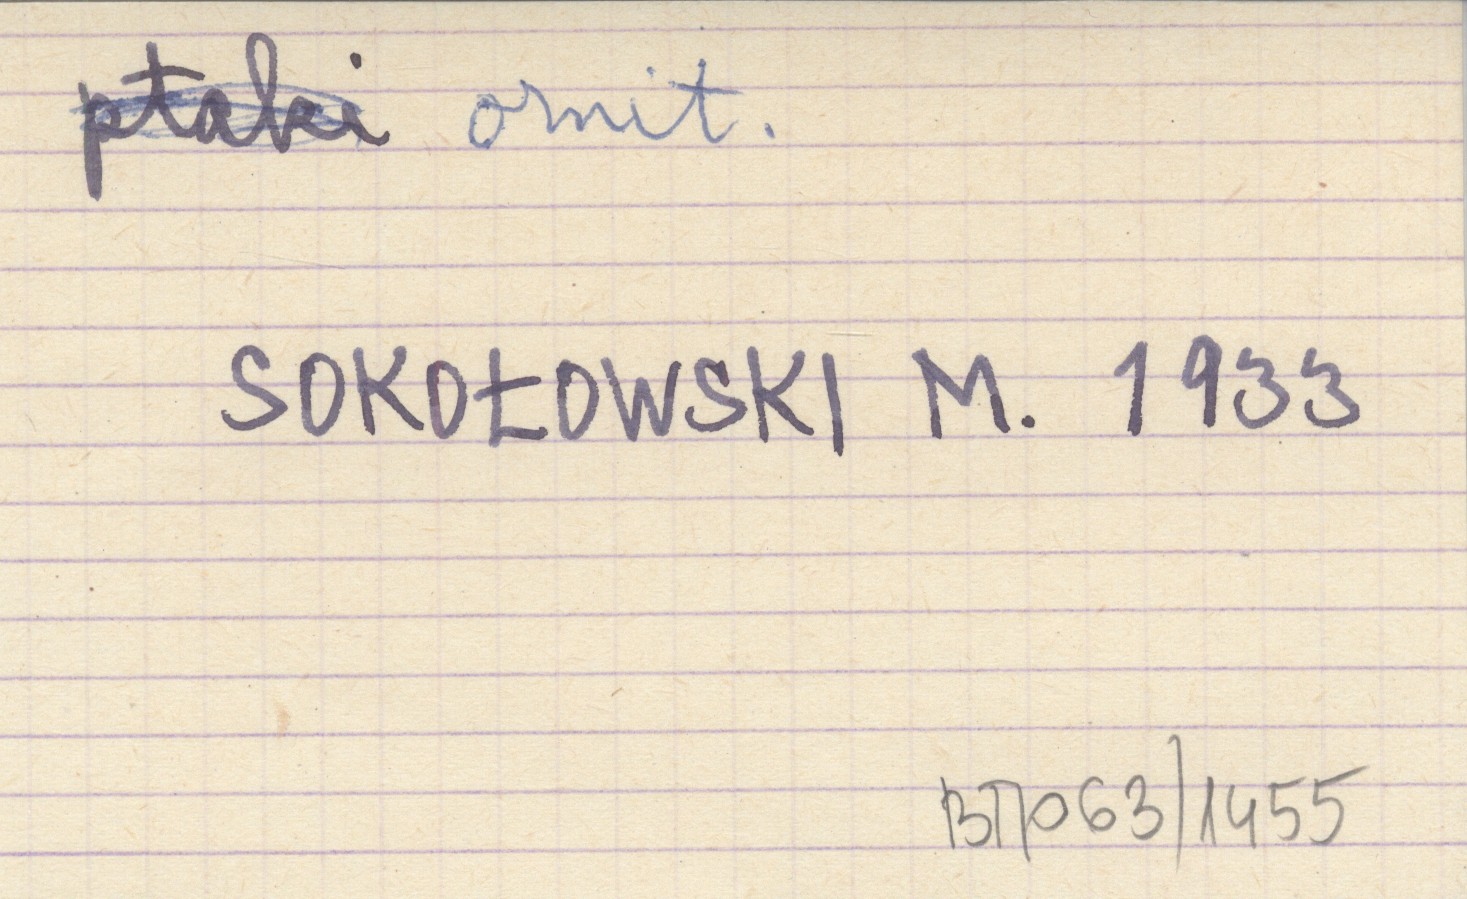 ptaki ornit.
SOKOŁOWSKI M. 1933
ВП063/1455